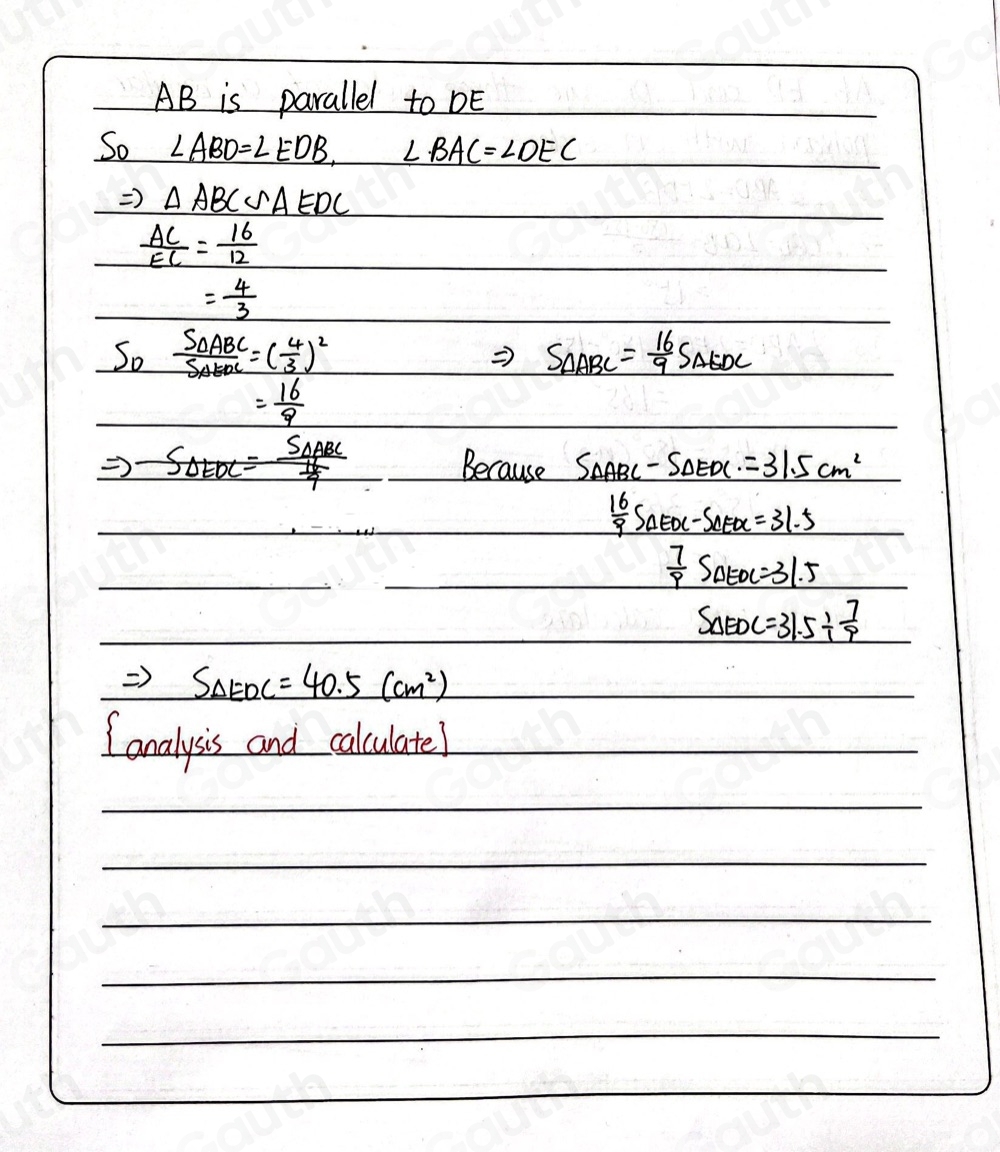 AB is parallel to DE
So ∠ABD=∠EDB, ∠BAC=∠DEC
⇒ △ABC∽△EDC
AC/EC = 16/12
= 4/3
So S△ABC/S△EDC = (4/3)² ⇒ S△ABC = 16/9 S△EDC
= 16/9
⇒ S△EDC = S△ABC/(16/9) Because S△ABC - S△EDC = 31.5 cm²
16/9 S△EDC - S△EDC = 31.5
7/9 S△EDC = 31.5
S△EDC = 31.5 ÷ 7/9
⇒ S△EDC = 40.5 (cm²)
{analysis and calculate}
Gauth